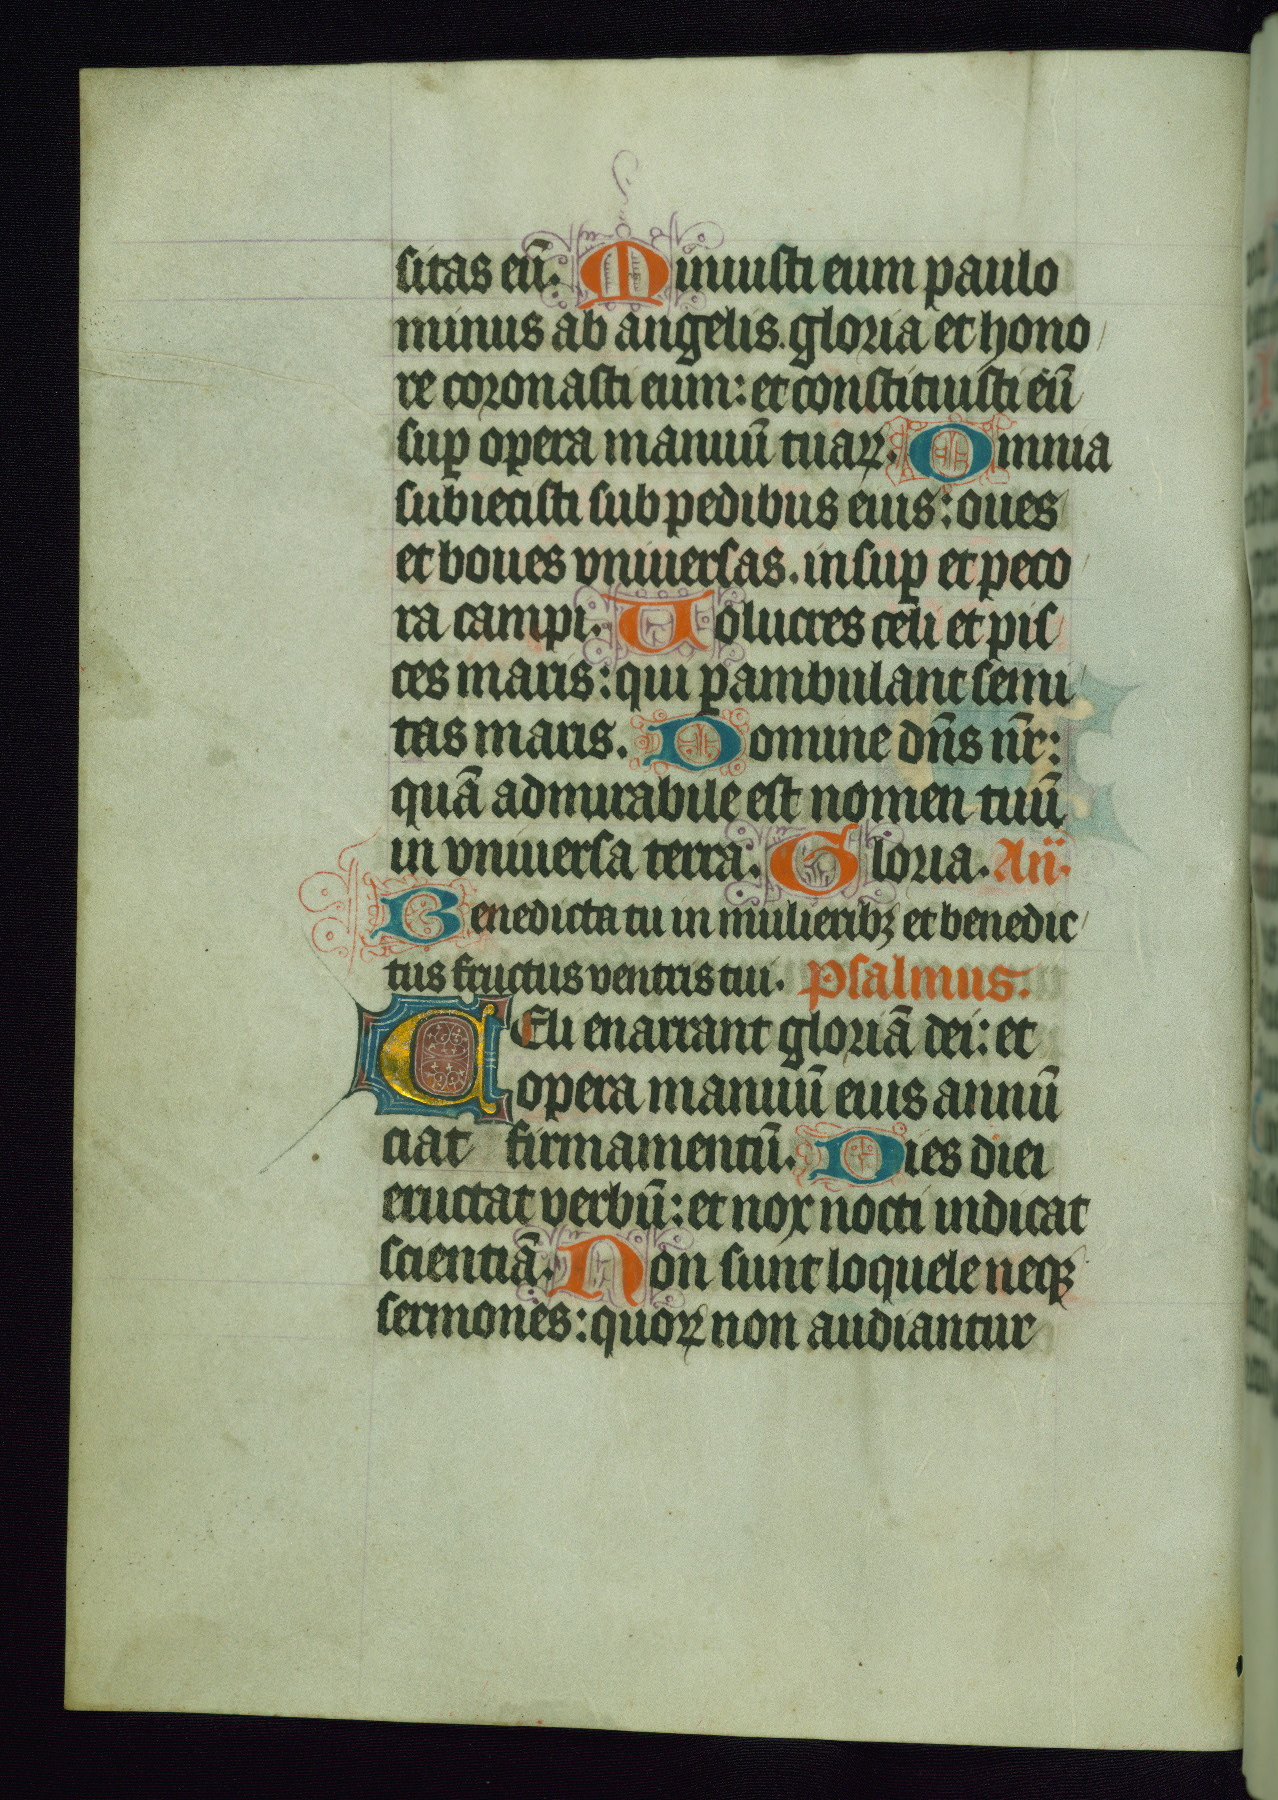 sitas eū. Minuisti eum paulo
minus ab angelis. gloria et hono
re coronasti eum: et constituisti eū
suꝑ opera manuū tuaꝝ. Omnia
subiecisti sub pedibus eius: oues
et boues vniuersas. insuꝑ et peco
ra campi. Uolucres celi et pis
ces maris: qui ꝑambulant semi
tas maris. Domine dn̄s nr̄:
quā admirabile est nomen tuū
in vniuersa terra. Gloria. An̄.
Benedicta tu in mulieribꝫ et benedic
tus fructus ventris tui. Psalmus.
CEli enarrant gloriā dei: et
opera manuū eius annū
ciat firmamentū. Dies diei
eructat verbū: et nox nocti indicat
scientiā. Non sunt loquele neqꝫ
sermones: quoꝝ non audiantur